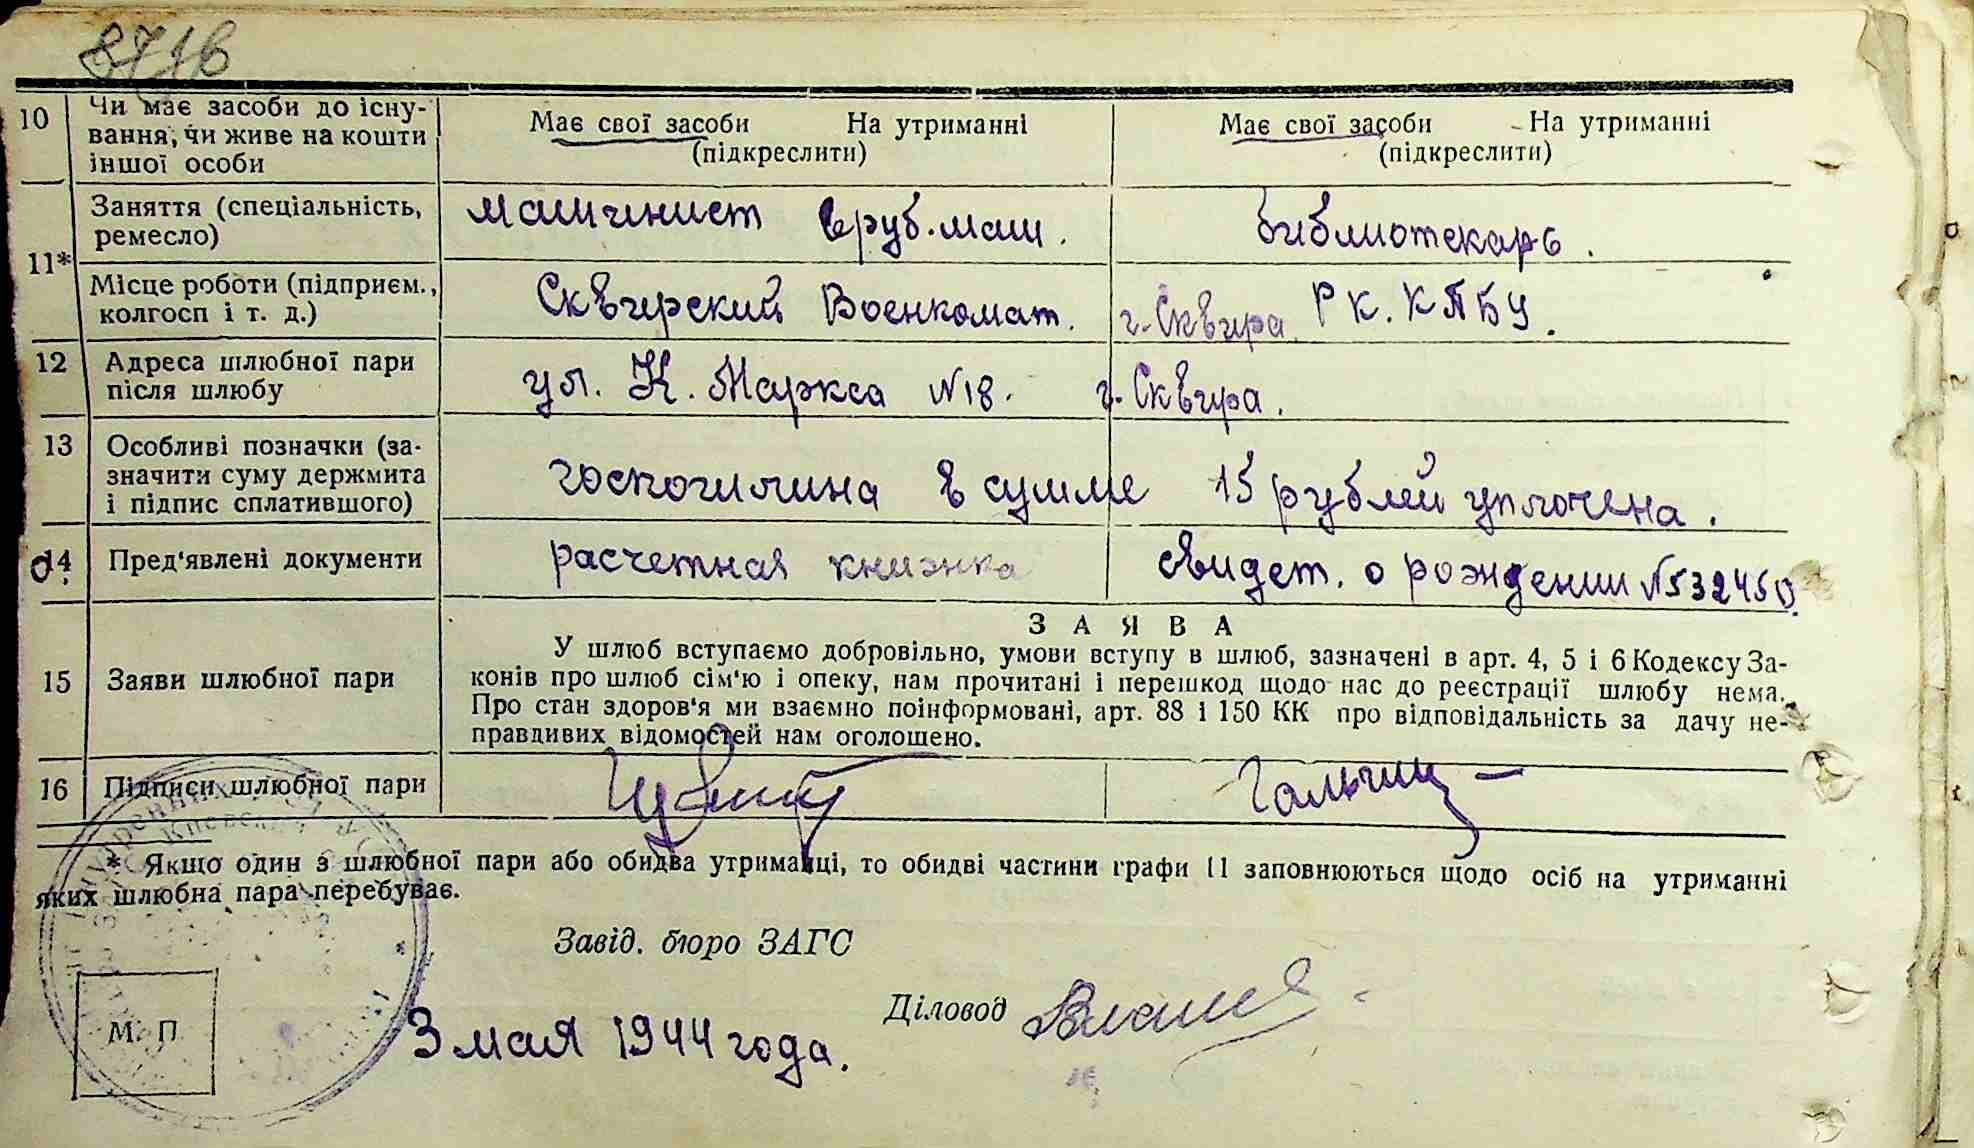 871в
10 Чи має засоби до існу-
вання, чи живе на кошти
іншої особи
Має свої засоби На утриманні
(підкреслити)
Має свої засоби На утриманні
(підкреслити)
11*
Заняття (спеціальність,
ремесло)
машинист вруб. маш.
библиотекарь.
Місце роботи (підприєм.,
колгосп і т. д.)
Сквирский Военкомат.
г. Сквира. РК. КПБУ.
12 Адреса шлюбної пари
після шлюбу
ул. К. Маркса №18. г. Сквира.
13 Особливі позначки (за-
значити суму держмита
і підпис сплатившого)
госпошлина в сумме 15 рублей уплочена.
14 Пред'явлені документи
расчетная книжка
свидет. о рождении №532450.
15 Заяви шлюбної пари
ЗАЯВА
У шлюб вступаємо добровільно, умови вступу в шлюб, зазначені в арт. 4, 5 і 6 Кодексу За-
конів про шлюб сім'ю і опеку, нам прочитані і перешкод щодо нас до реєстрації шлюбу нема.
Про стан здоров'я ми взаємно поінформовані, арт. 88 і 150 КК про відповідальність за дачу не-
правдивих відомостей нам оголошено.
16 Підписи шлюбної пари
* Якщо один з шлюбної пари або обидва утриманці, то обидві частини графи 11 заповнюються щодо осіб на утриманні
яких шлюбна пара перебуває.
Завід. бюро ЗАГС
Діловод
М. П
3 мая 1944 года.